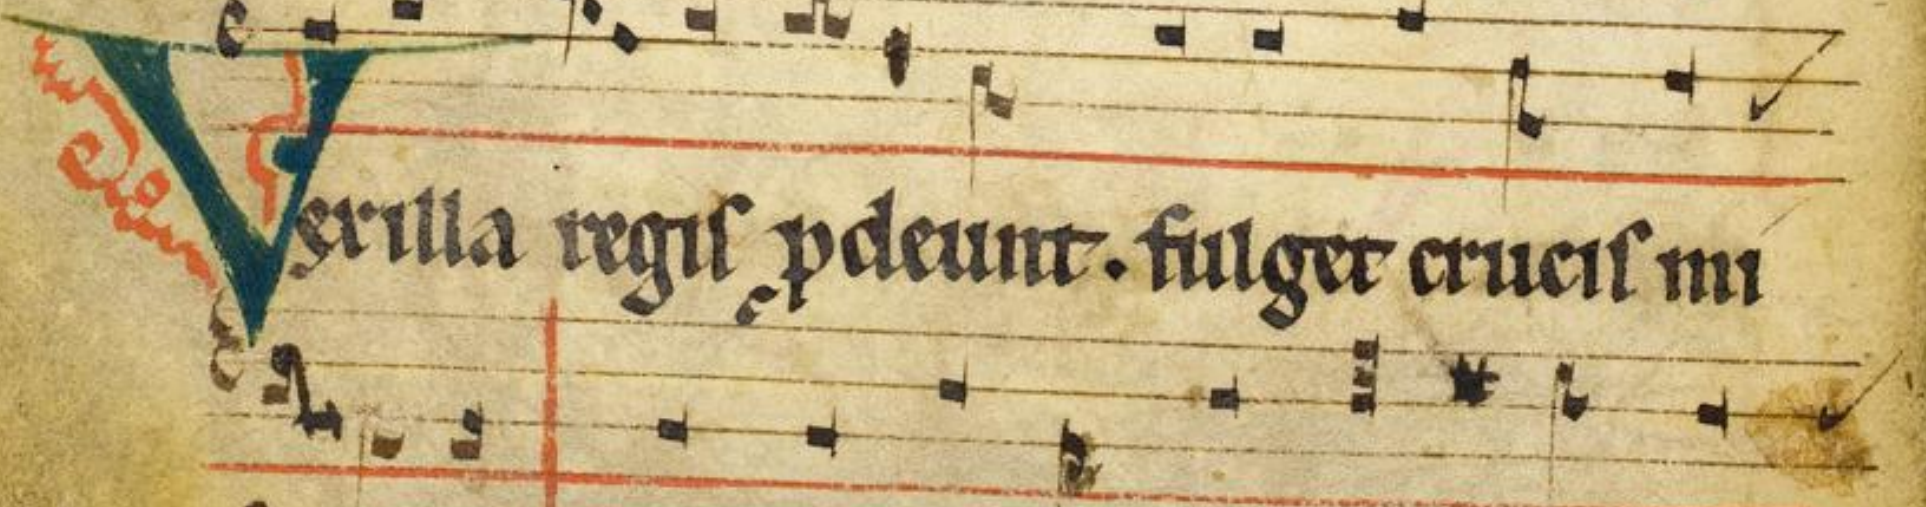 Vexilla regis ꝓdeunt. fulget crucis mi